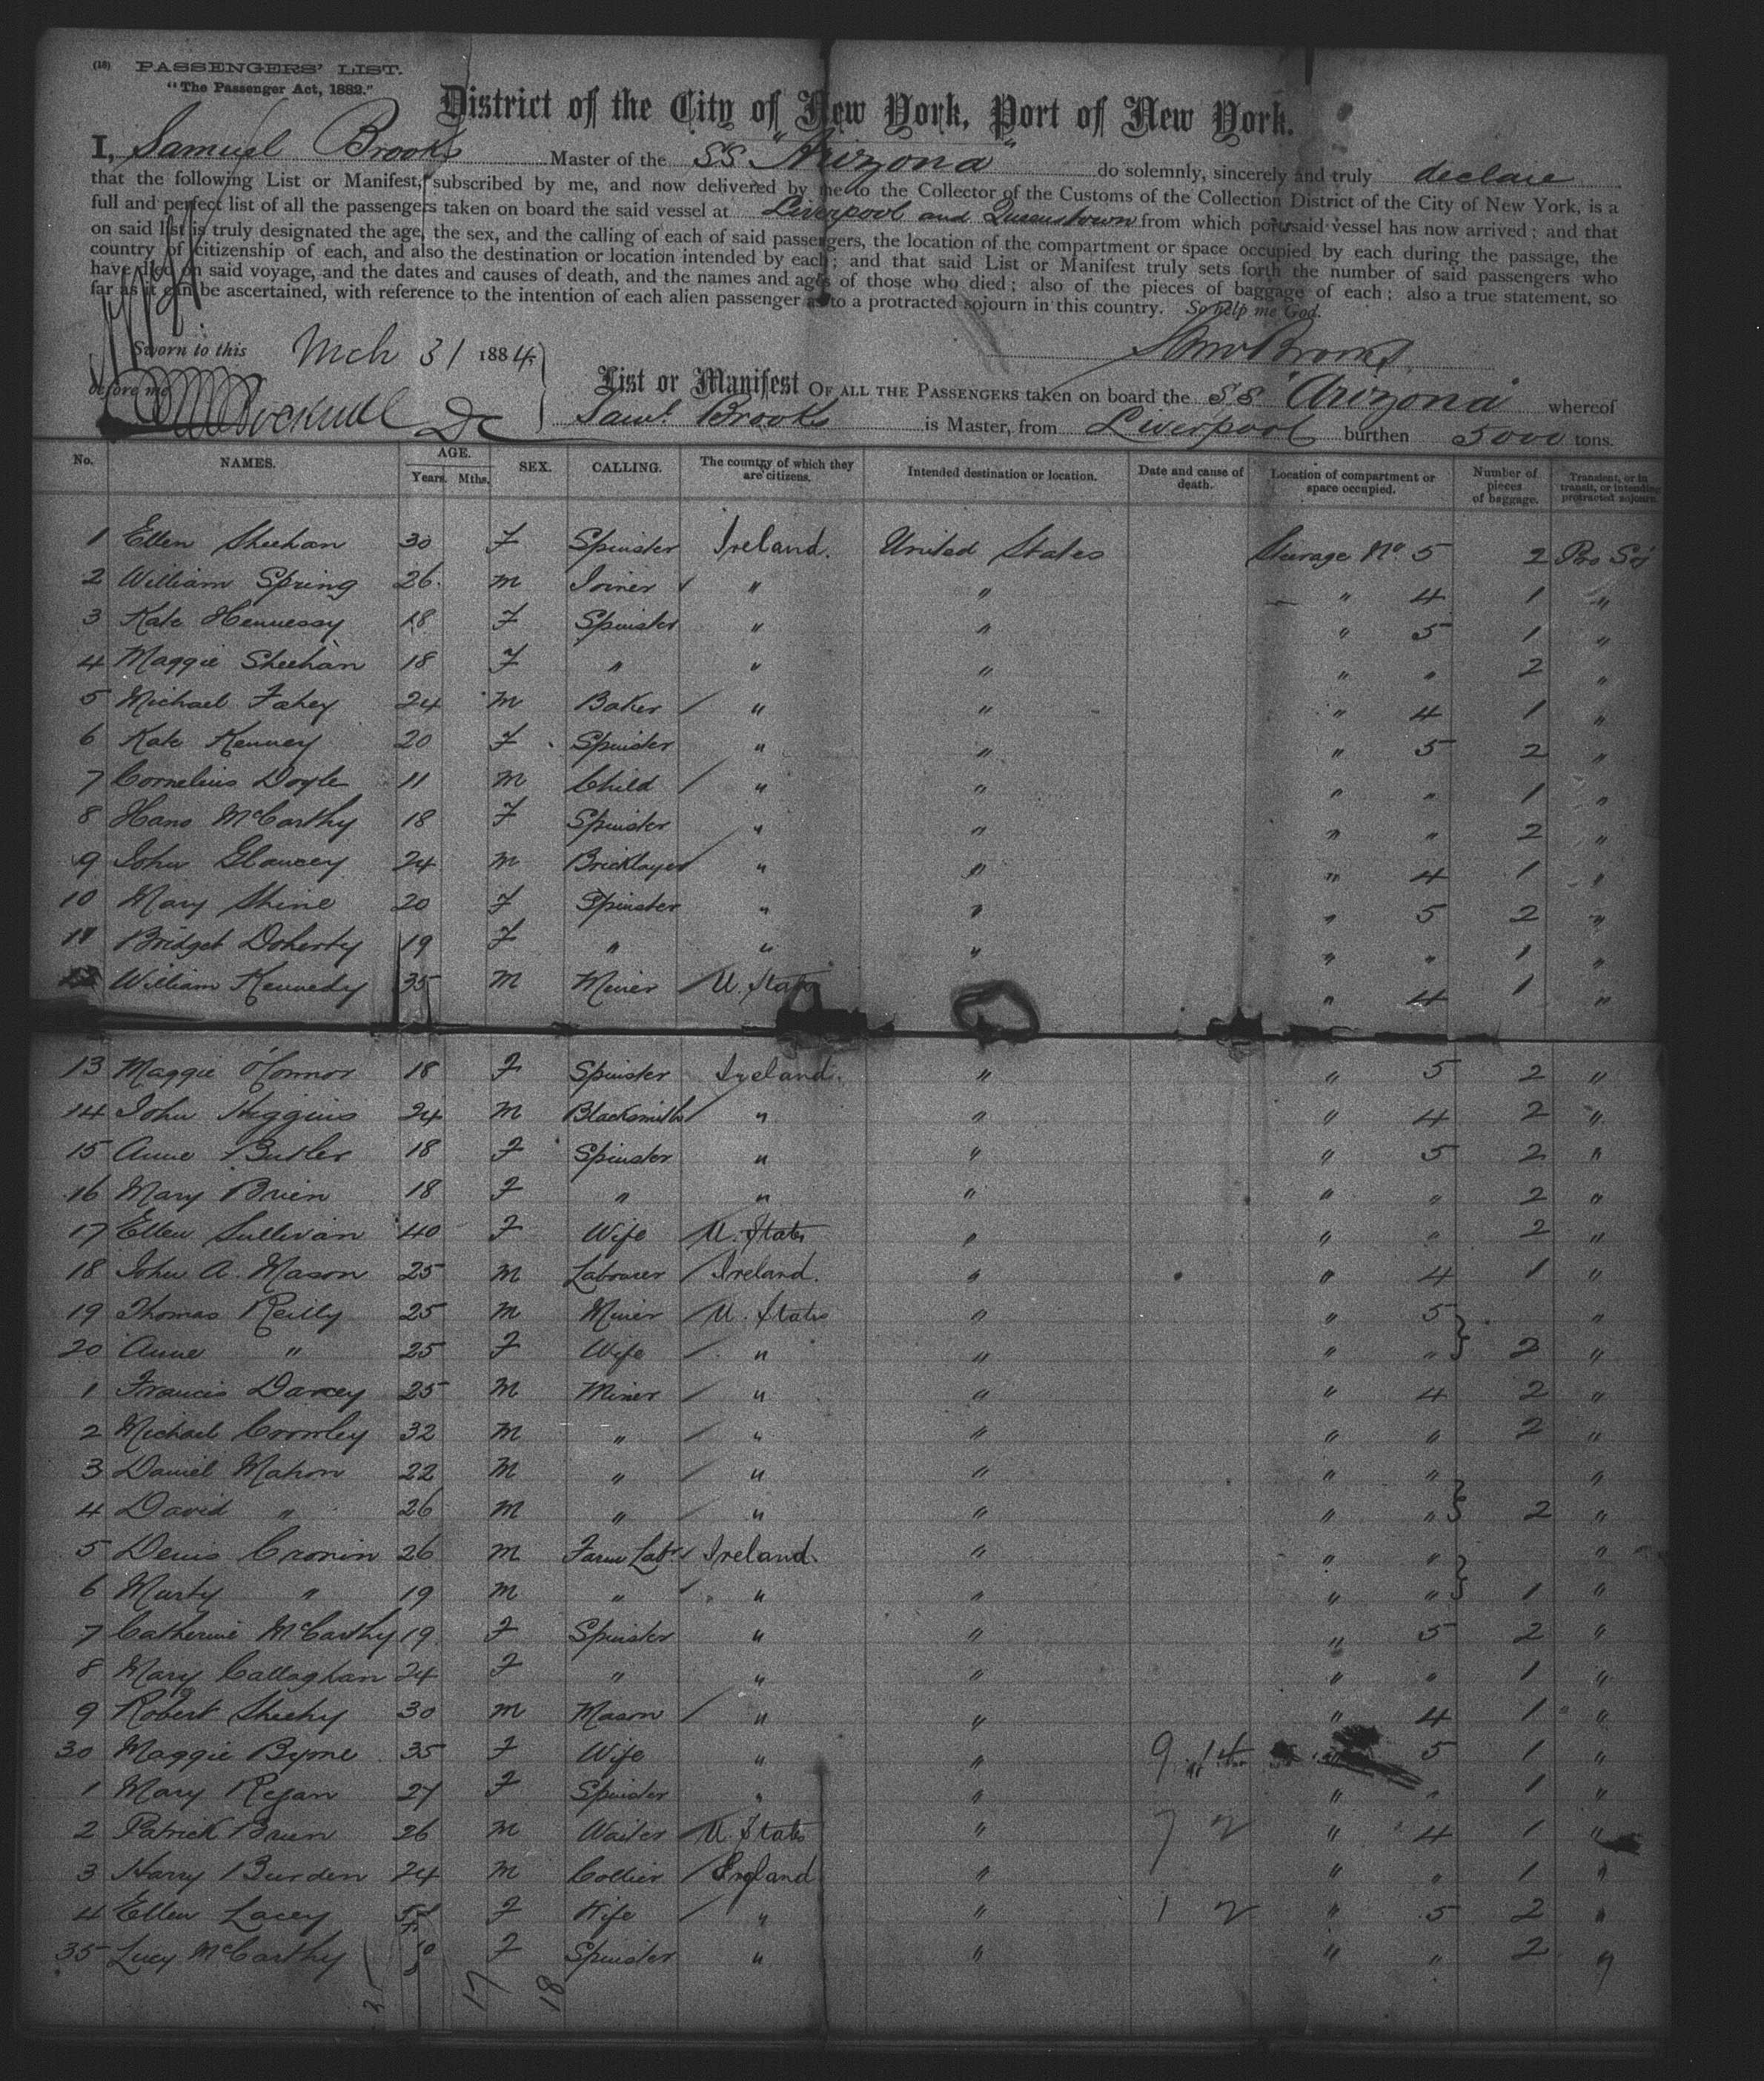 (18) PASSENGERS' LIST.
"The Passenger Act, 1882."
District of the City of New York, Port of New York.
I, Samuel Brooks Master of the SS "Arizona" do solemnly, sincerely and truly declare
that the following List or Manifest, subscribed by me, and now delivered by me to the Collector of the Customs of the Collection District of the City of New York, is a
full and perfect list of all the passengers taken on board the said vessel at Liverpool and Queenstown from which port said vessel has now arrived; and that
on said list is truly designated the age, the sex, and the calling of each of said passengers, the location of the compartment or space occupied by each during the passage, the
country of citizenship of each, and also the destination or location intended by each; and that said List or Manifest truly sets forth the number of said passengers who
have died on said voyage, and the dates and causes of death, and the names and ages of those who died; also of the pieces of baggage of each; also a true statement, so
far as it can be ascertained, with reference to the intention of each alien passenger as to a protracted sojourn in this country. So help me God.
Sworn to this Mch 31 1884 Saml Brooks
before me
List or Manifest OF ALL THE PASSENGERS taken on board the SS "Arizona" whereof
Saml. Brooks is Master, from Liverpool burthen 5000 tons.
No. NAMES. AGE. Years. Mths. SEX. CALLING. The country of which they are citizens. Intended destination or location. Date and cause of death. Location of compartment or space occupied. Number of pieces of baggage. Transient, or in transit, or intending protracted sojourn.
1 Ellen Sheehan 30 F Spinster Ireland. United States Steerage No. 5 2 Pro Soj
2 William Spring 26 M Joiner " " " 4 1 "
3 Kate Hennessy 18 F Spinster " " " 5 1 "
4 Maggie Sheehan 18 F " " " " " 2 "
5 Michael Fahey 24 M Baker " " " 4 1 "
6 Kate Kenney 20 F Spinster " " " 5 2 "
7 Cornelius Doyle 11 M Child " " " " 1 "
8 Hano McCarthy 18 F Spinster " " " " 2 "
9 John Glancey 24 M Bricklayer " " " 4 1 "
10 Mary Shine 20 F Spinster " " " 5 2 "
11 Bridget Doherty 19 F " " " " " 1 "
12 William Kennedy 35 M Miner U. States " 4 1 "
13 Maggie O'Connor 18 F Spinster Ireland. " " 5 2 "
14 John Higgins 24 M Blacksmith " " " 4 2 "
15 Anne Butler 18 F Spinster " " " 5 2 "
16 Mary Brien 18 F " " " " " 2 "
17 Ellen Sullivan 40 F Wife U. States " " " 2 "
18 John A. Mason 25 M Labourer Ireland. " " 4 1 "
19 Thomas Reilly 25 M Miner U. States " " 5 "
20 Anne " 25 F Wife " " " " 2 "
1 Francis Darcey 25 M Miner " " " 4 2 "
2 Michael Crowley 32 M " " " " " 2 "
3 Daniel Mahon 22 M " " " " " "
4 David " 26 M " " " " " 2 "
5 Denis Cronin 26 M Farm Labr Ireland. " " " "
6 Murty " 19 M " " " " " 1 "
7 Catherine McCarthy 19 F Spinster " " " 5 2 "
8 Mary Callaghan 24 F " " " " " 1 "
9 Robert Sheehy 30 M Mason " " " 4 1 "
30 Maggie Byrne 35 F Wife " " 5 1 "
1 Mary Regan 27 F Spinster " " " " 1 "
2 Patrick Brien 26 M Waiter U. States " " 4 1 "
3 Harry Burden 24 M Collier England " " " 1 "
4 Ellen Lacey F Wife " " " 5 2 "
35 Lucy McCarthy F Spinster " " " " 2 "
17 18